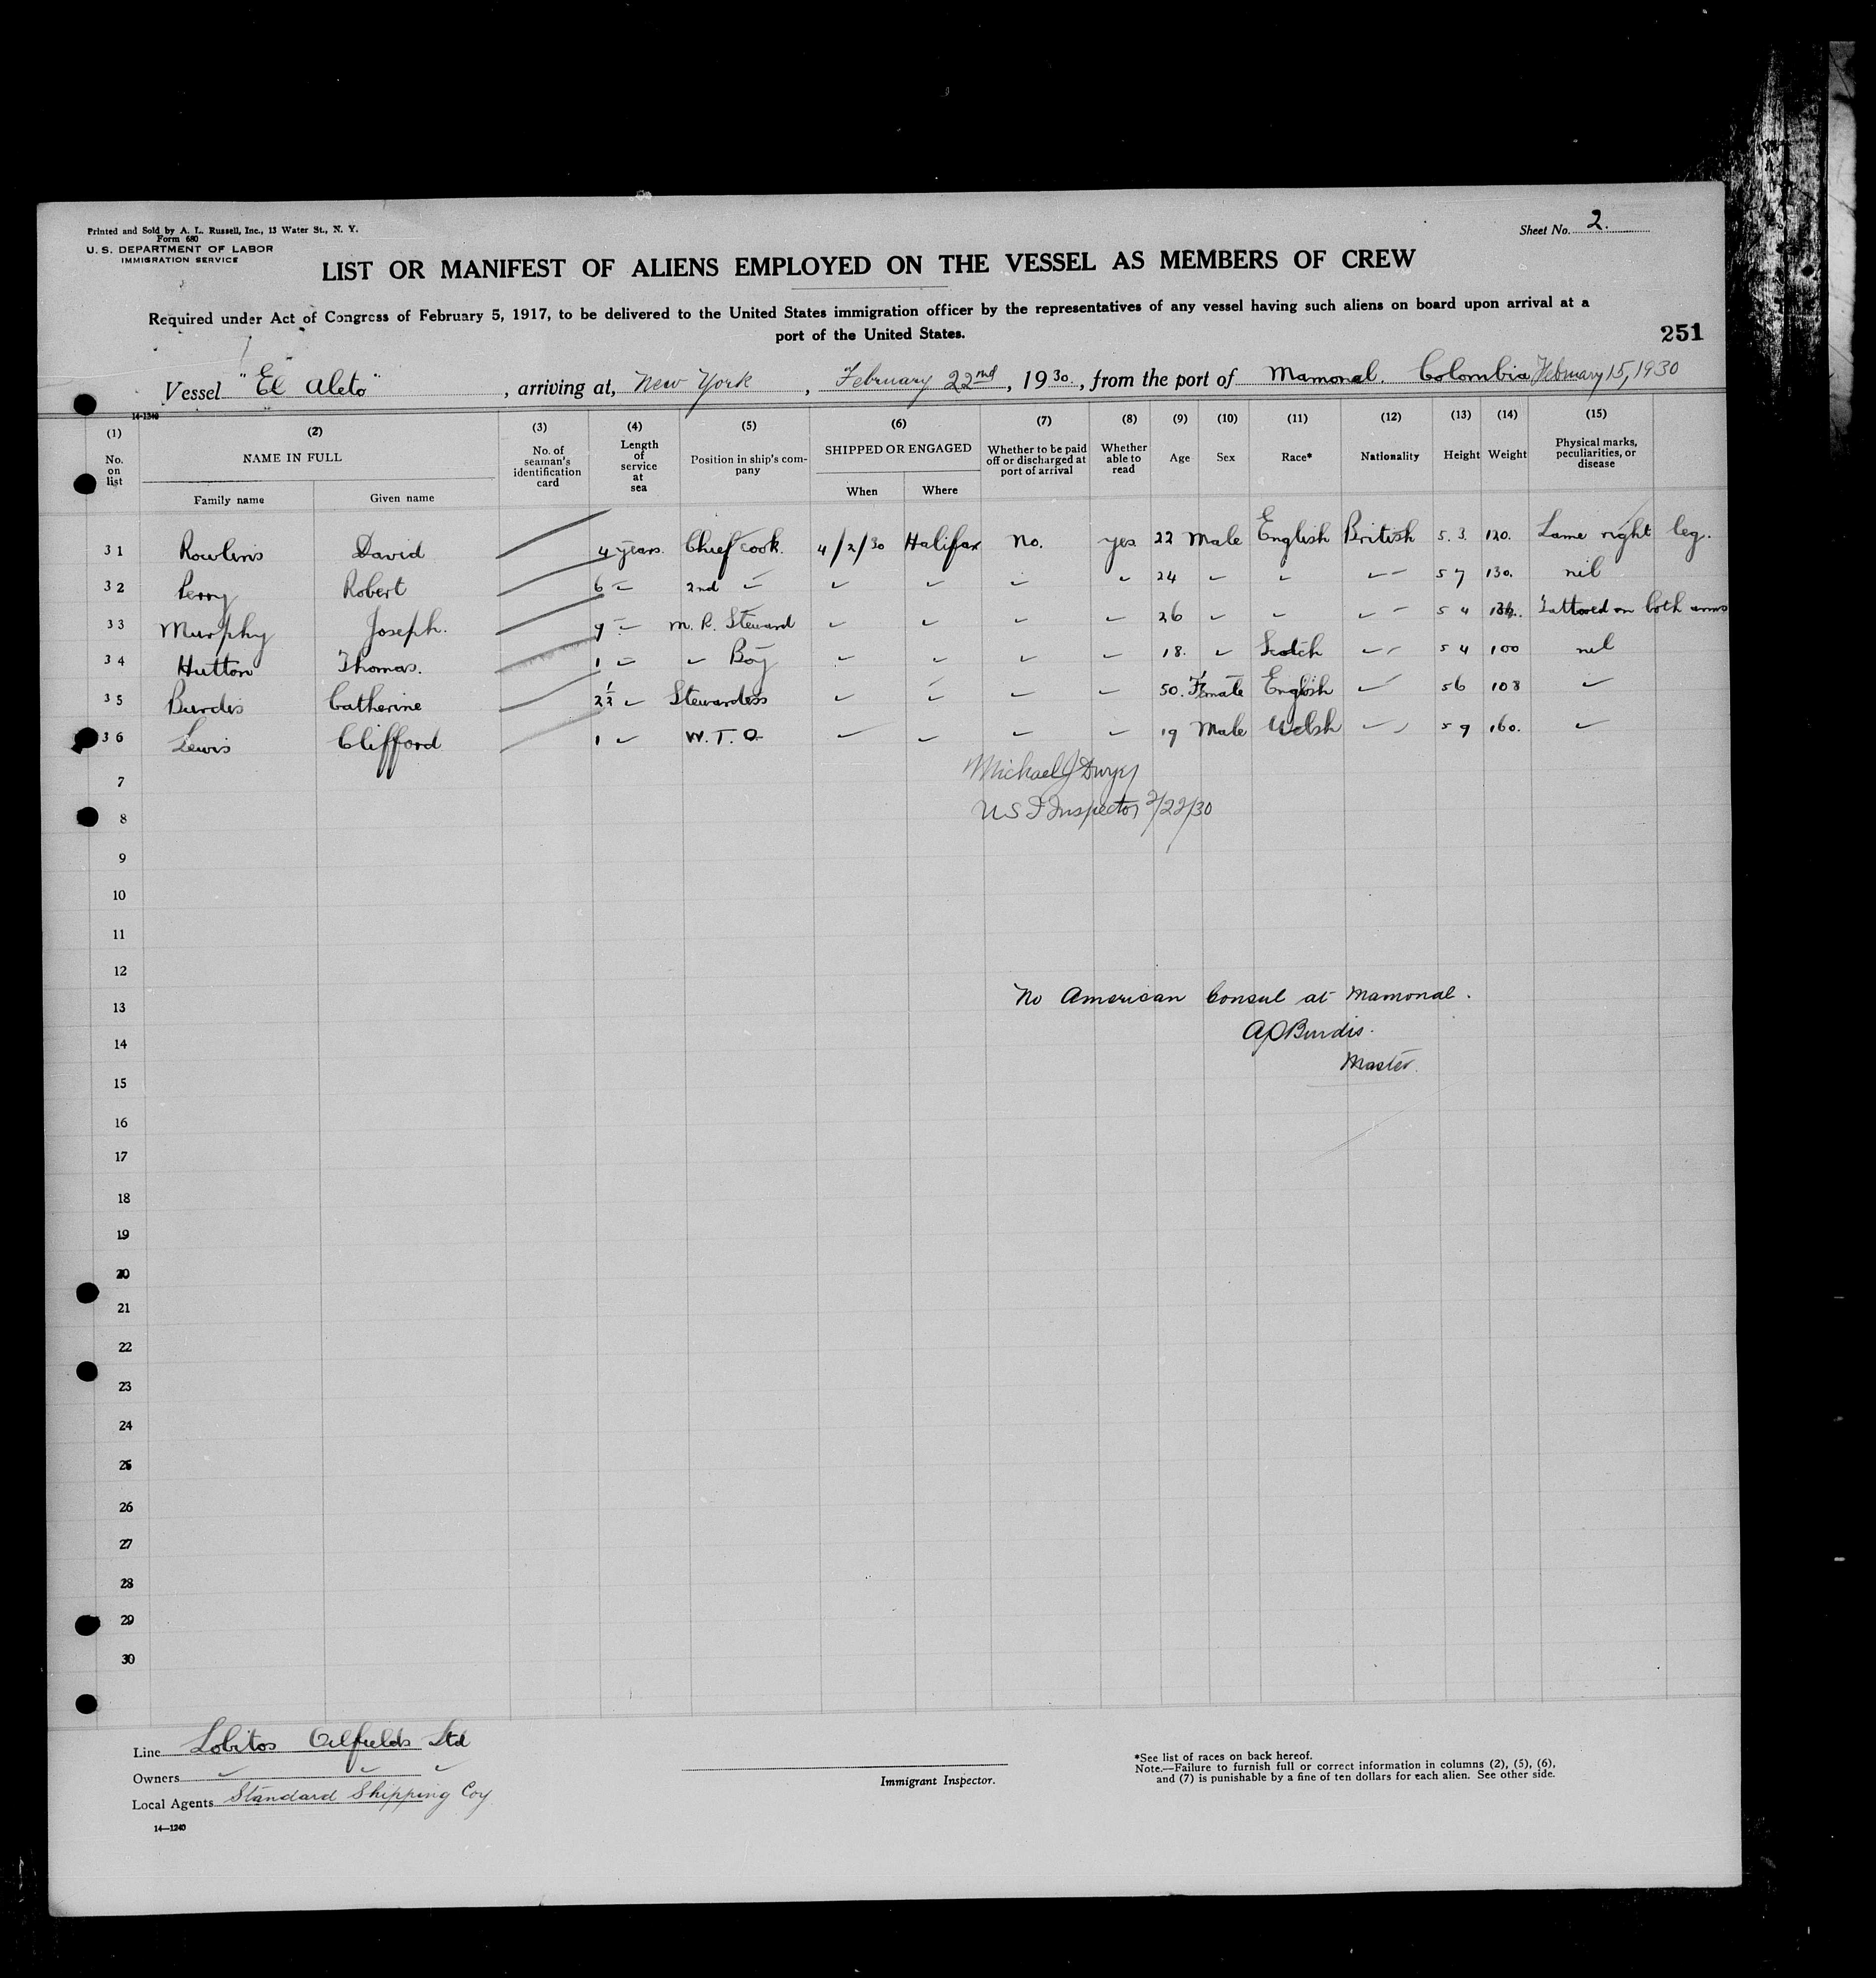 Printed and Sold by A. L. Russell, Inc., 13 Water St., N. Y.
Form 680
U. S. DEPARTMENT OF LABOR
IMMIGRATION SERVICE
Sheet No. 2.
LIST OR MANIFEST OF ALIENS EMPLOYED ON THE VESSEL AS MEMBERS OF CREW
Required under Act of Congress of February 5, 1917, to be delivered to the United States immigration officer by the representatives of any vessel having such aliens on board upon arrival at a
port of the United States.
251
Vessel "El Aleto", arriving at, New York, February 22nd, 1930, from the port of Mamonal. Colombia February 15, 1930
14-1240
(1) (2) (3) (4) (5) (6) (7) (8) (9) (10) (11) (12) (13) (14) (15)
No. on list NAME IN FULL Family name Given name No. of seaman's identification card Length of service at sea Position in ship's company SHIPPED OR ENGAGED When Where Whether to be paid off or discharged at port of arrival Whether able to read Age Sex Race* Nationality Height Weight Physical marks, peculiarities, or disease
31 Rowlins David 4 years. Chief cook. 4/2/30 Halifax No. yes 22 Male English British 5.3. 120. Lame right leg.
32 Perry Robert 6 " 2nd " " " " " 24 " " " 5 7 130. nil
33 Murphy Joseph. 9 " M. R. Steward " " " " 26 " " " 5 4 Tattooed on both arms
34 Hutton Thomas. 1 " " Boy " " " " 18. " Scotch " 5 4 100 nil
35 Burdis Catherine 2½ " Stewardess " " " " 50. Female English " 5 6 108 "
36 Lewis Clifford 1 " W. T. O. " " " " 19 Male Welsh " 5 9 160. "
7 Michael J Dwyer
8 US I Inspector 2/22/30
9
10
11
12
13 No American Consul at Mamonal.
14 Burdis.
Master.
15
16
17
18
19
20
21
22
23
24
25
26
27
28
29
30
Line Lobitos Oilfields Ltd
Owners " " "
Local Agents Standard Shipping Coy
14—1240
Immigrant Inspector.
*See list of races on back hereof.
Note.—Failure to furnish full or correct information in columns (2), (5), (6),
and (7) is punishable by a fine of ten dollars for each alien. See other side.